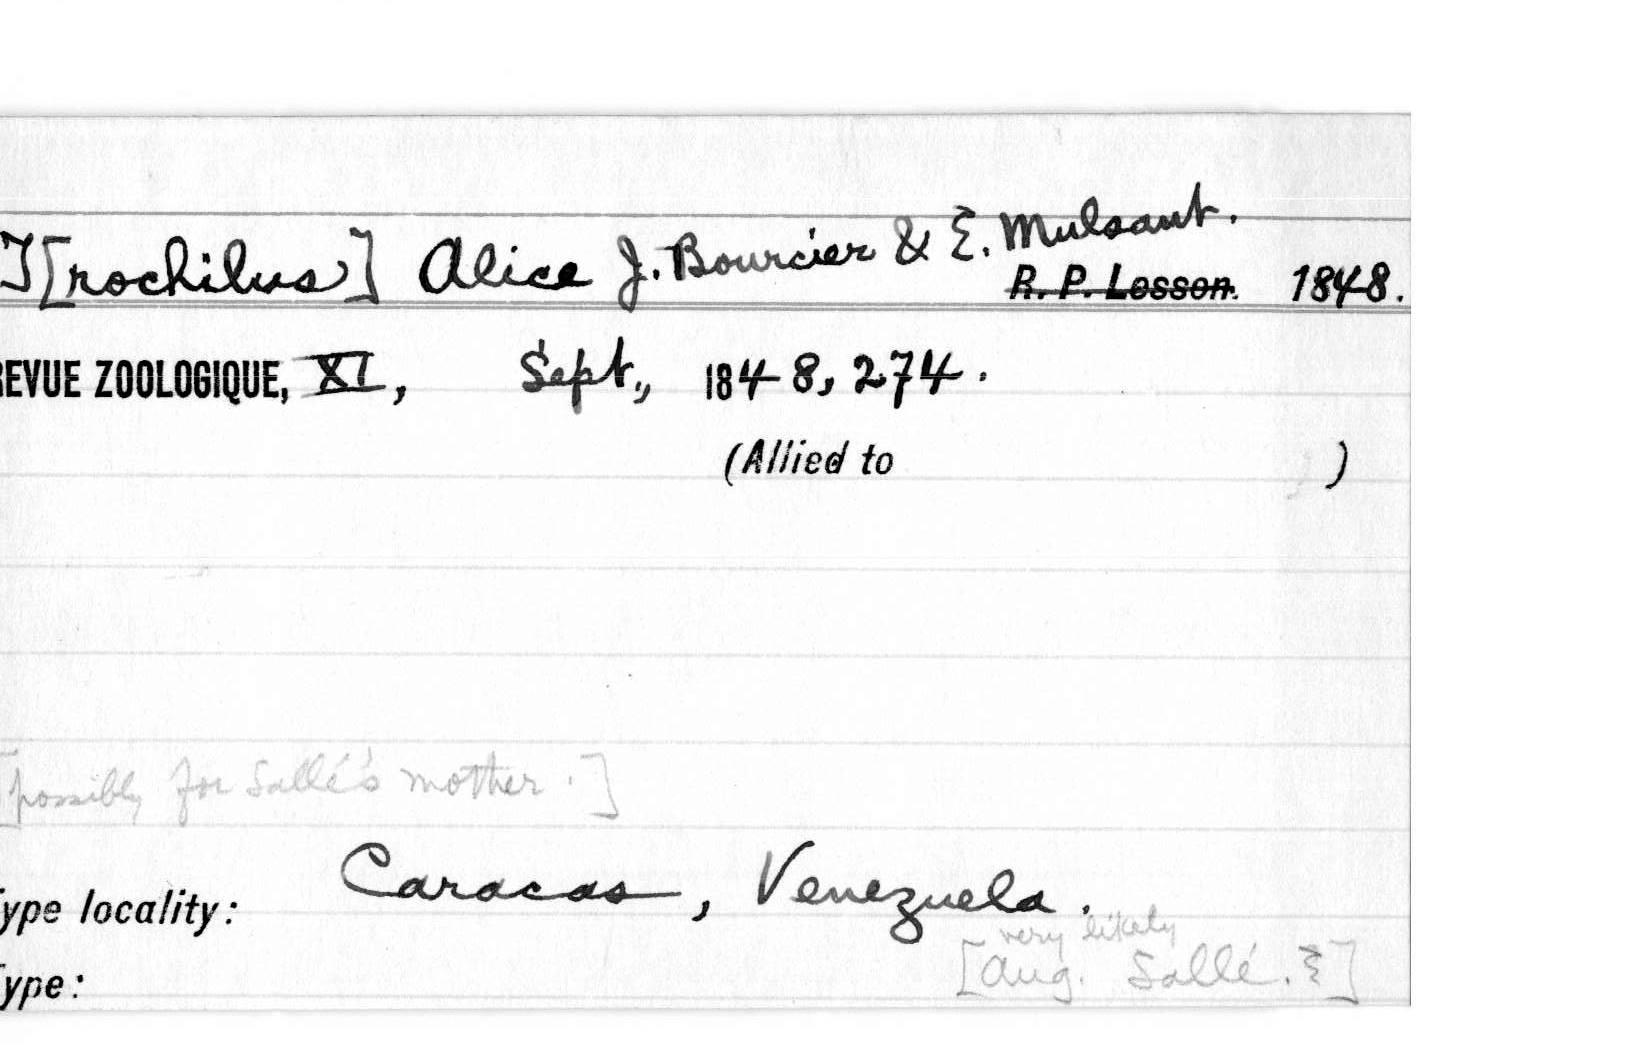 T[rochilus] Alice J. Bourcier & E. Mulsant.
R. P. Lesson. 1848.
REVUE ZOOLOGIQUE, XI, Sept., 1848, 274.
(Allied to )
[possibly for Sallé's mother.]
Type locality: Caracas, Venezuela.
very likely
Type: [Aug. Sallé. ]